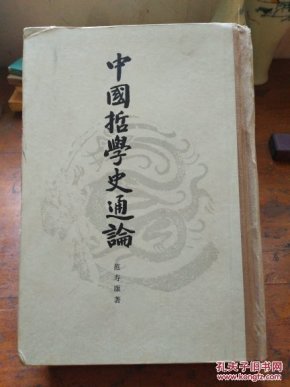 中國哲學史通論
范寿康著
孔夫子旧书网